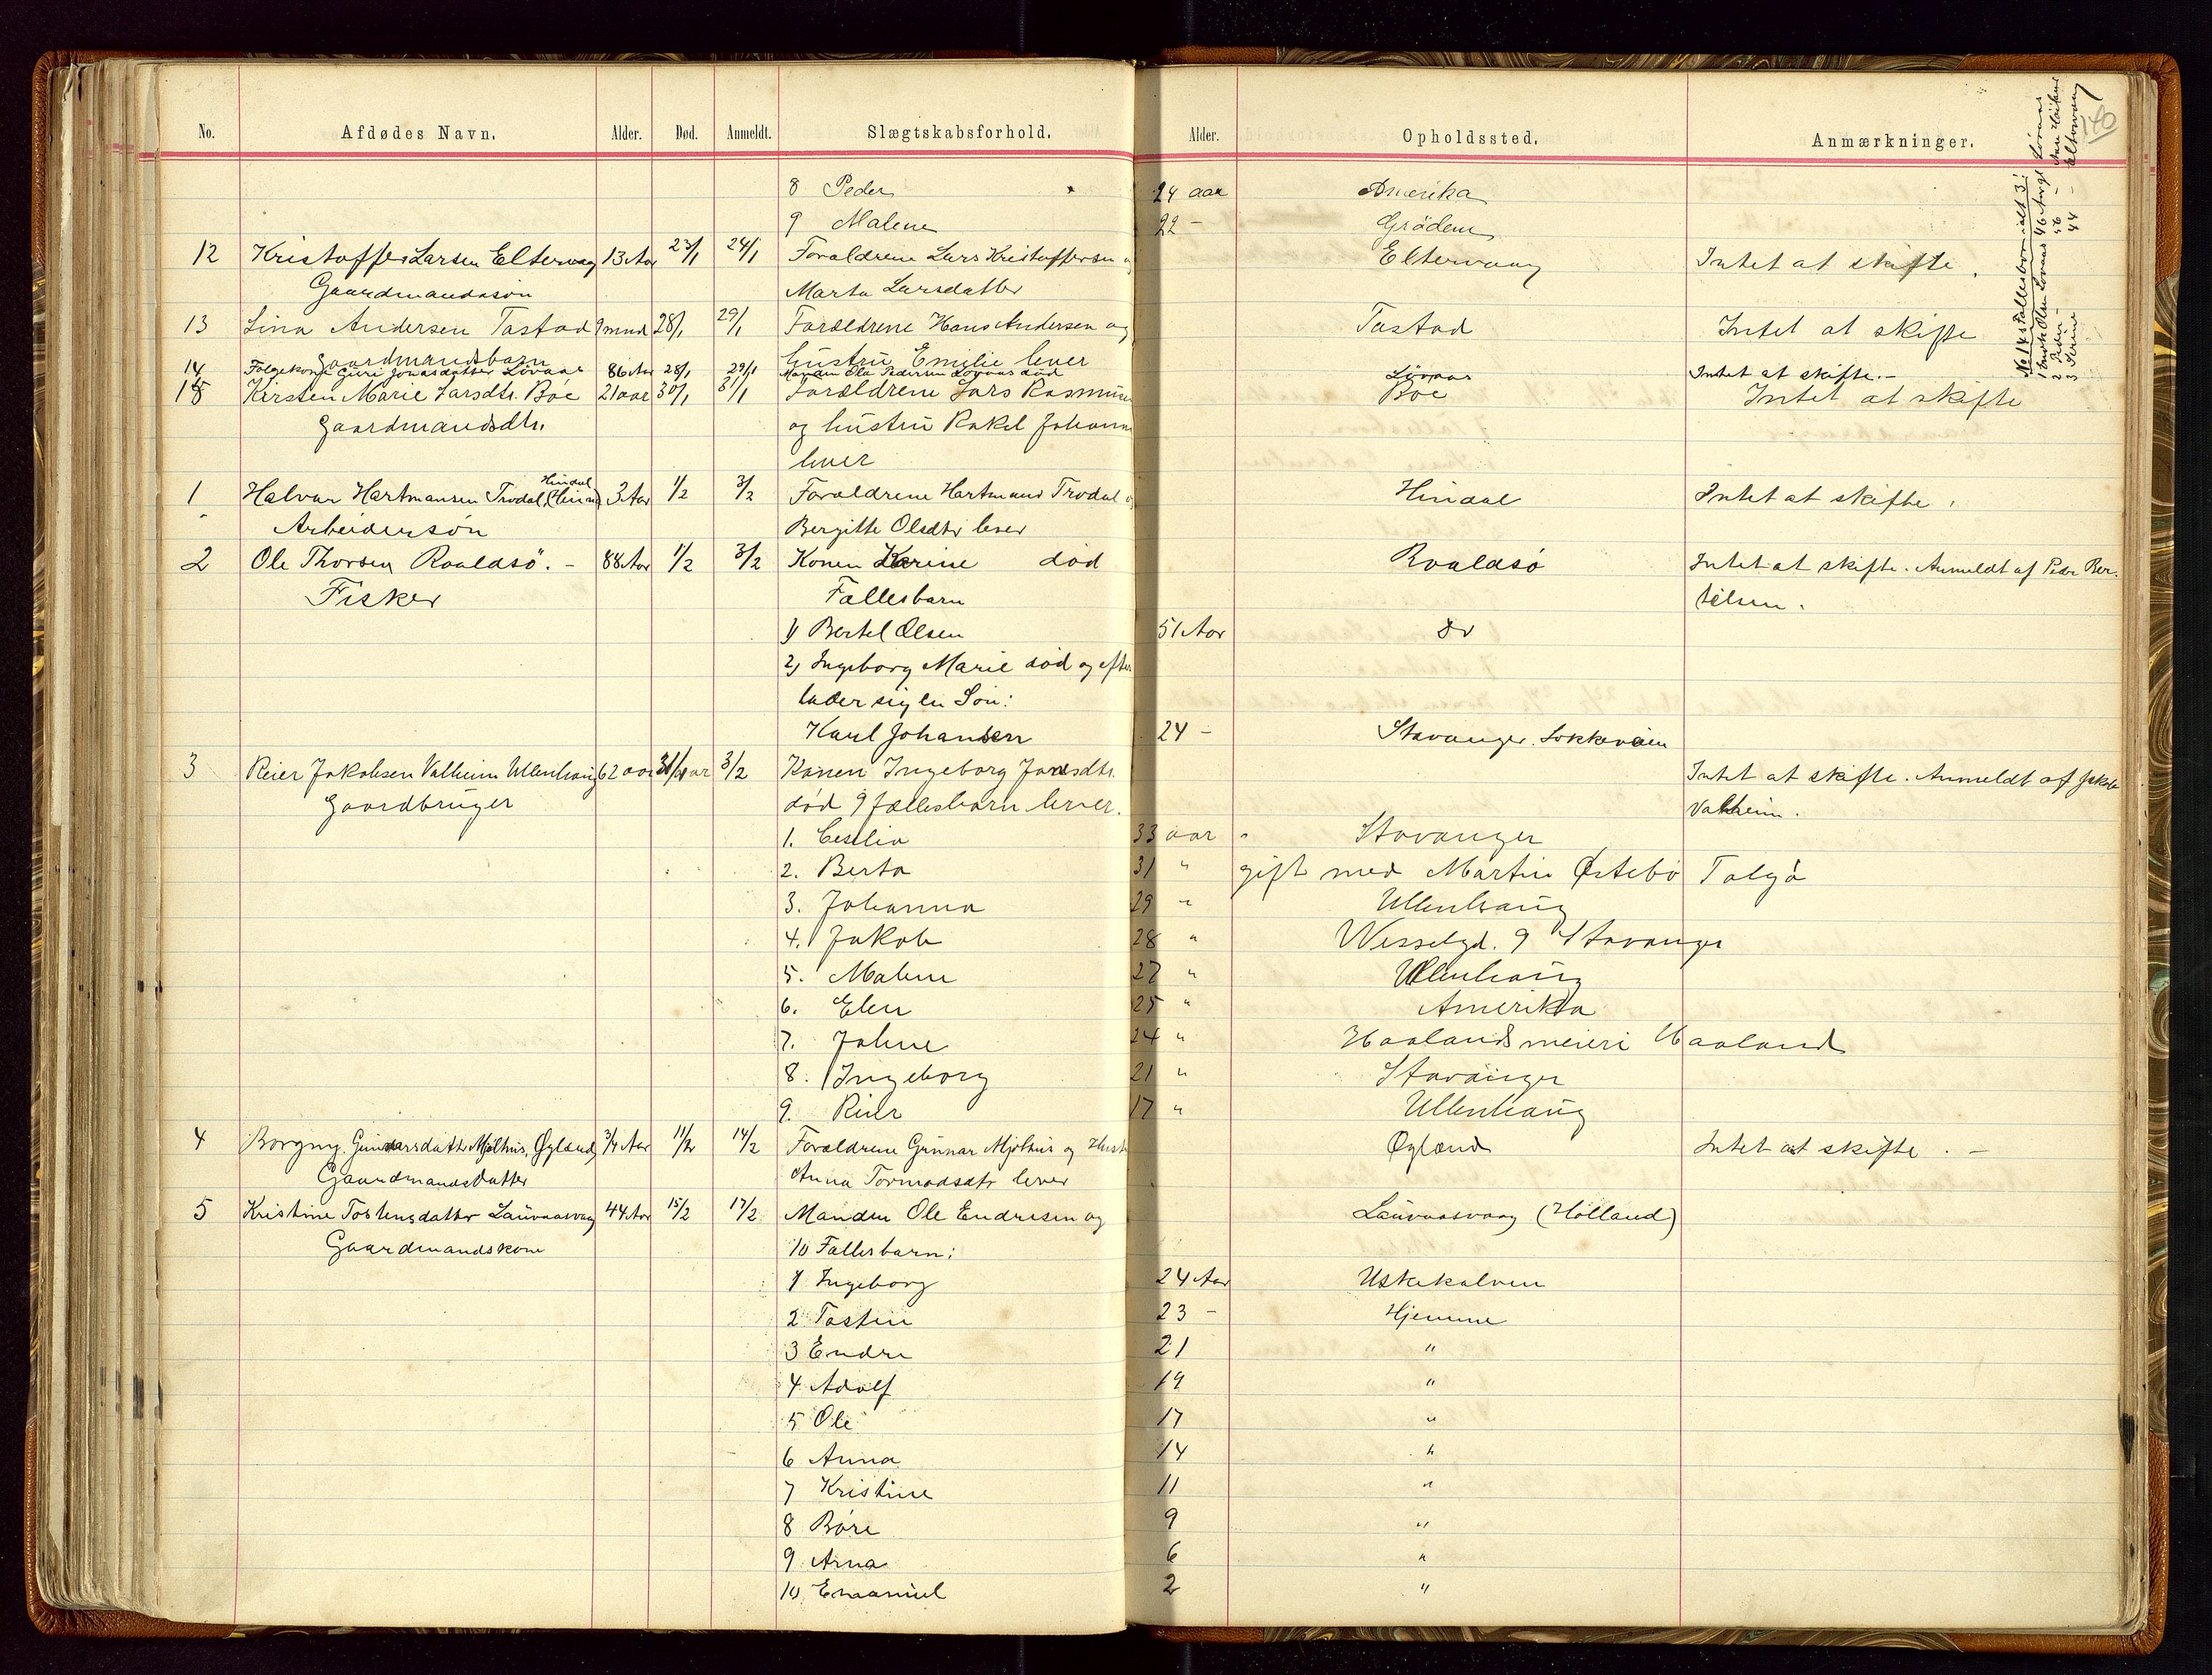 No. Afdødes Navn. Alder. Død. Anmeldt. Slægtskabsforhold. Alder. Opholdssted. Anmærkninger. 140
8 Peder 24 aar Amerika
9 Malene 22 - Grödem
12 Kristoffer Larsen Eltervaag 13 Aar 23/1 24/1 Forældrene Lars Kristoffersen Eltervaag Intet at skifte.
Gaardmandssön Marta Larsdatter
13 Lina Andersen Tastad 9 mnd 28/1 29/1 Forældrene Hans Andersen og Tastad Intet at skifte
Gaardmandsbarn hustru Emilie lever
14 Følgekone Guri Jonasdatter Lövaas 86 Aar 28/1 29/1 Manden Ole Pedersen Lovaas död Lövaas Intet at skifte. -
15 Kirsten Marie Larsdtr. Böe 21 aar 30/1 31/1 Forældrene Lars Rasmusen Böe Intet at skifte
Gaardmandsdtr. og hustru Rakel Johanne
lever
No 14s Fællesbörn ialt 3:
2 Peder - 56 -
3 Serine 44 - Eltervaag
1 Halvar Hartmansen Trodal Hindal 3 Aar 1/2 3/2 Forældrene Hartmand Trodal Hindal Intet at skifte.
Arbeidersön Bergitte Olsdtr lever
2 Ole Thorsen Roaldsö. - 88 Aar 1/2 3/2 Konen Karine død Roaldsö Intet at skifte. Anmeldt af Peder Ber-
Fisker Fællesbarn telsen.
1) Bertel Olsen 51 Aar do
2) Ingeborg Marie död og efter
lader sig en Sön:
Karl Johansen 24 - Stavanger. Lokkeveien
3 Reier Jakobsen Valheim Ullenhaug 62 aar 31/1 3/2 Konen Ingeborg Jonsdtr. Intet at skifte. Anmeldt af Jakob
Gaardbruger död 9 fællesbarn lever. Valheim.
1. Ceselia 33 aar Stavanger
2. Berta 31 " gift med Martin Østebö Talgö
3. Johanna 29 " Ullenhaug
4. Jakob 28 " Wesselgd. 9 Stavanger
5. Malene 27 " Ullenhaug
6. Elen 25 " Amerika
7. Johne 24 " Haalands meieri Haaland
8. Ingeborg 21 " Stavanger
9. Reier 17 " Ullenhaug
4 Borgny Gunnarsdatter Mjølhus, Øgland 3/4 Aar 11/2 14/2 Forældrene Gunnar Mjölhus og Hustr Øgland Intet at skifte. -
Gaardmandsdatter Anna Tormodsdtr lever
5 Kristine Tostensdatter Lauvaasvaag 44 Aar 15/2 17/2 Manden Ole Endresen og Lauvaasvaag (Holland)
Gaardmandskone 10 Fællesbarn:
1 Ingeborg 24 Aar Uskekalven
2 Tostein 23 - Hjemme
3 Endre 21 "
4 Adolf 19 "
5 Ole 17 "
6 Anna 14 "
7 Kristine 11 "
8 Bore 9 "
9 Arna 6 "
10 Emanuel 2 "